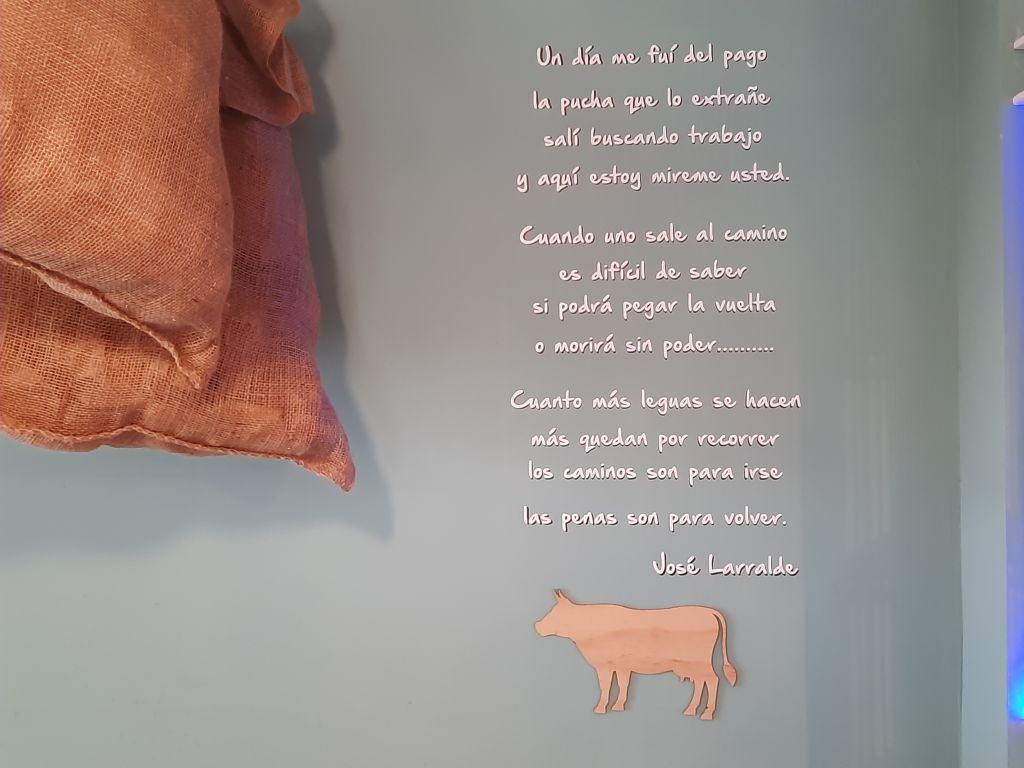 Un día me fuí del pago
la pucha que lo extrañe
salí buscando trabajo
y aquí estoy mireme usted.
Cuando uno sale al camino
es difícil de saber
si podrá pegar la vuelta
o morirá sin poder..........
Cuanto más leguas se hacen
más quedan por recorrer
los caminos son para irse
las penas son para volver.
José Larralde